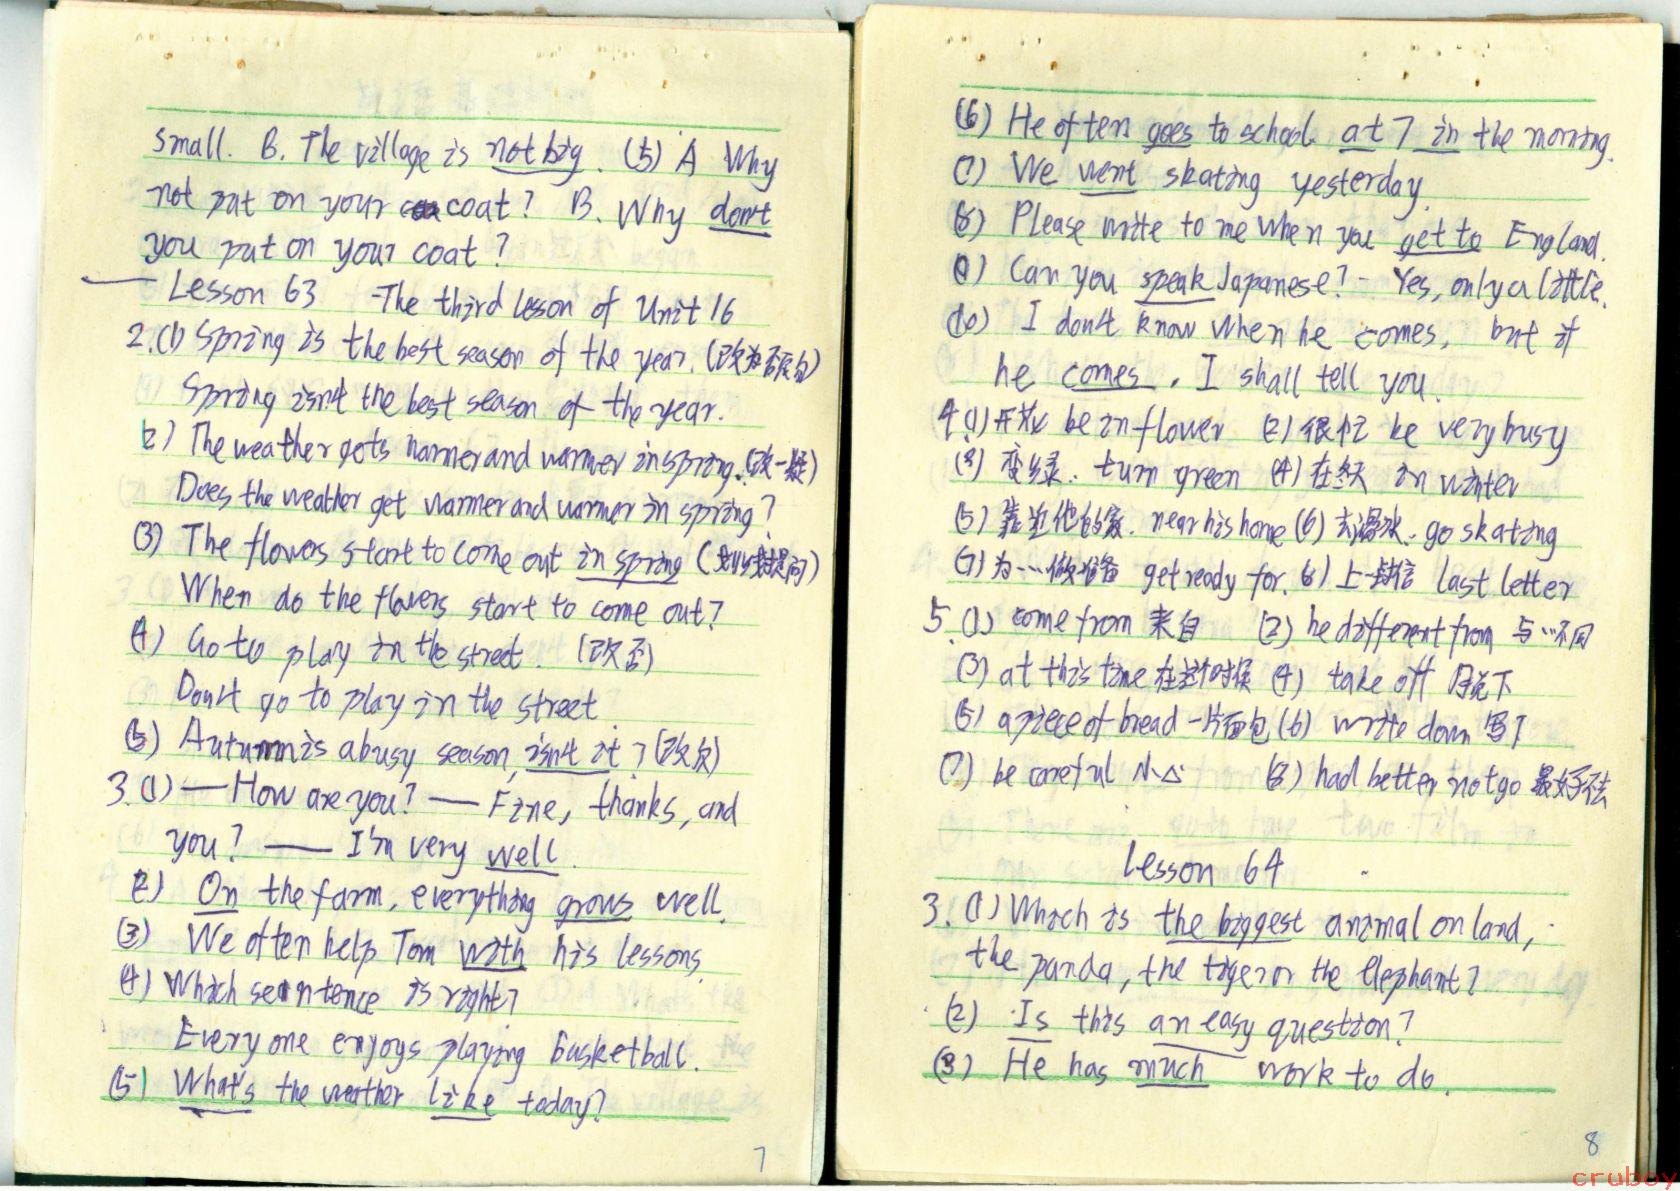 small. B. The village is not big. (5) A Why
not put on your coat? B. Why don't
you put on your coat?
Lesson 63 -The third lesson of Unit 16
2.(1) Spring is the best season of the year. (改为否定句)
Spring isn't the best season of the year.
(2) The weather gets warmer and warmer in spring. (改一疑)
Does the weather get warmer and warmer in spring?
(3) The flowers start to come out in spring (划线提问)
When do the flowers start to come out?
(4) Go to play in the street. (改否)
Don't go to play in the street
(5) Autumn is a busy season, isn't it? (改反)
3.(1) — How are you? — Fine, thanks, and
you? — I'm very well.
(2) On the farm, everything grows well.
(3) We often help Tom with his lessons.
(4) Which sentence is right?
Everyone enjoys playing basketball.
(5) What's the weather like today?
7
(6) He often goes to school at 7 in the morning.
(7) We went skating yesterday.
(8) Please write to me when you get to England.
(9) Can you speak Japanese? - Yes, only a little.
(10) I don't know when he comes, but if
he comes, I shall tell you.
4(1)开花 be in flower (2) 很忙 be very busy
(3) 变绿. turn green (4) 在冬天 in winter
(5) 靠近他的家. near his home (6) 去滑冰. go skating
(7) 为……做准备 get ready for. (8) 上一封信 last letter
5.(1) come from 来自 (2) be different from 与…不同
(3) at this time 在这个时候 (4) take off 脱下
(5) a piece of bread 一片面包 (6) write down 写下
(7) be careful 小心 (8) had better not go 最好不去
Lesson 64
3.(1) Which is the biggest animal on land,
the panda, the tiger or the elephant?
(2) Is this an easy question?
(3) He has much work to do.
8
cruboy